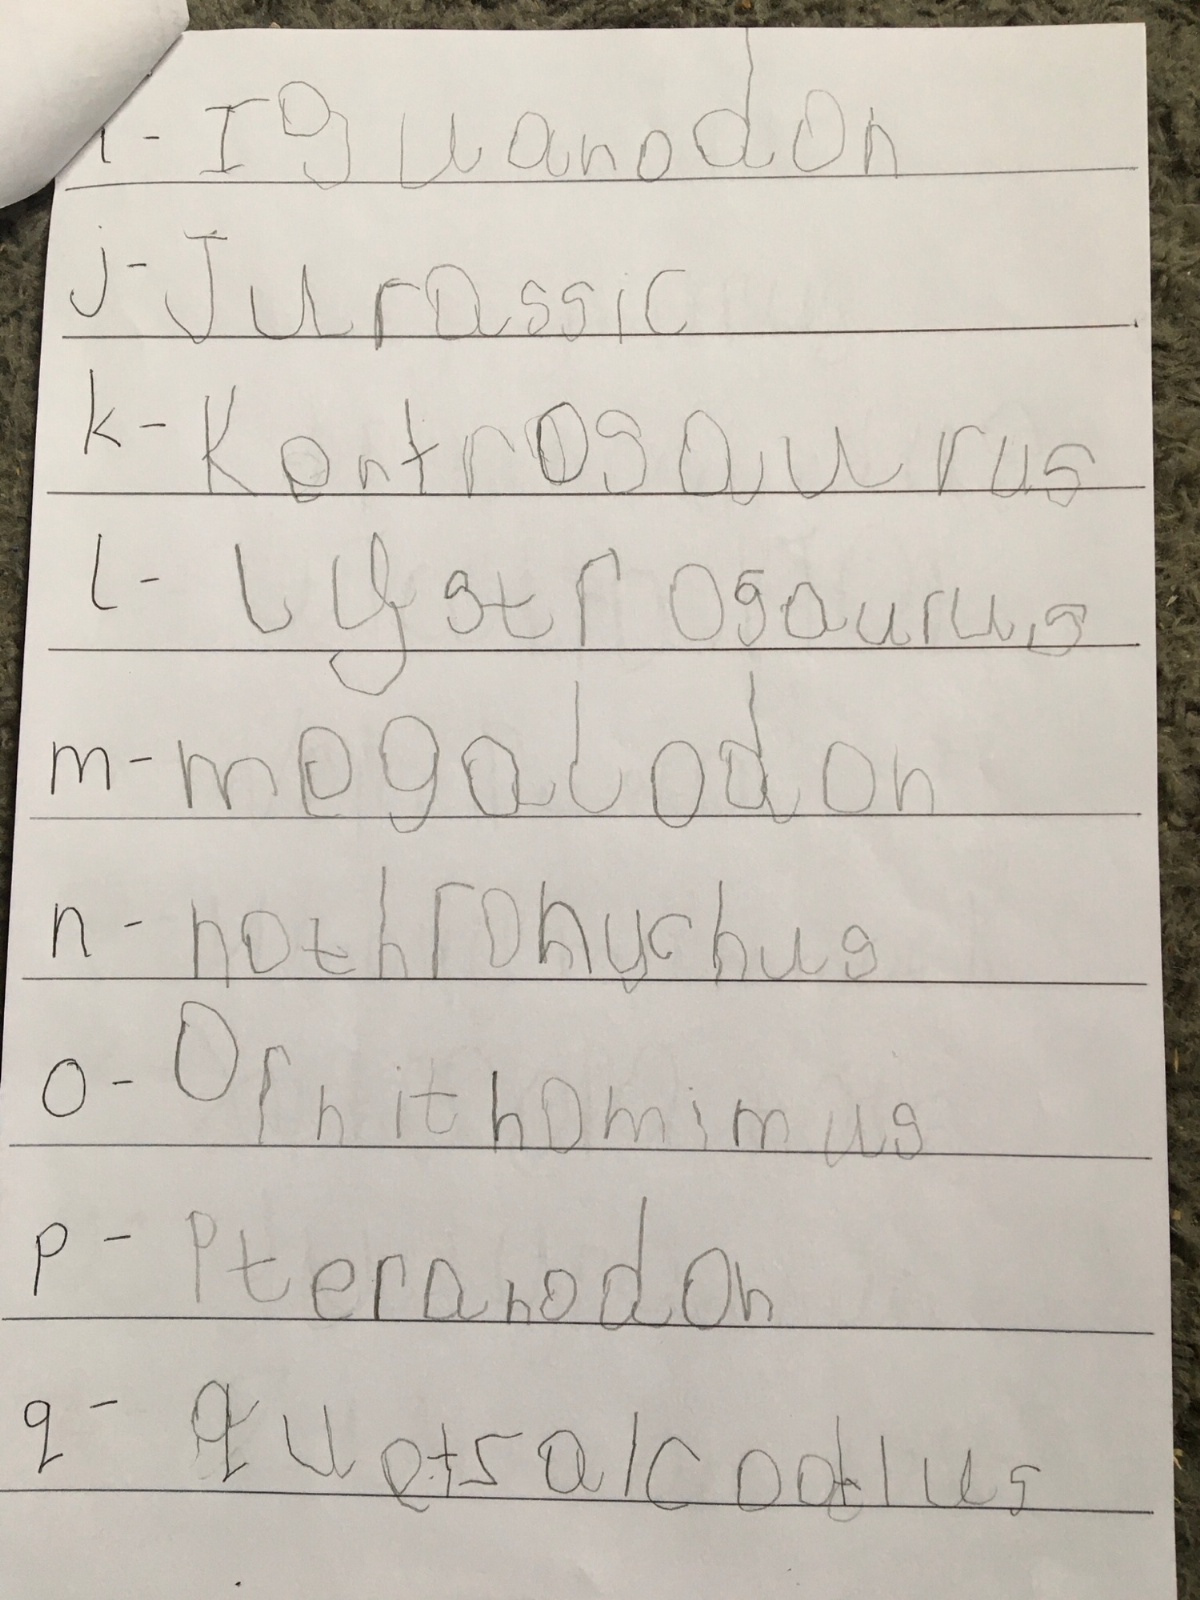 i - Iguanodon
j - Jurassic
k - Kentrosaurus
l - lystrosaurus
m - megalodon
n - nothronychus
o - Ornithomimus
p - Pteranodon
q - quetsalcoatlus